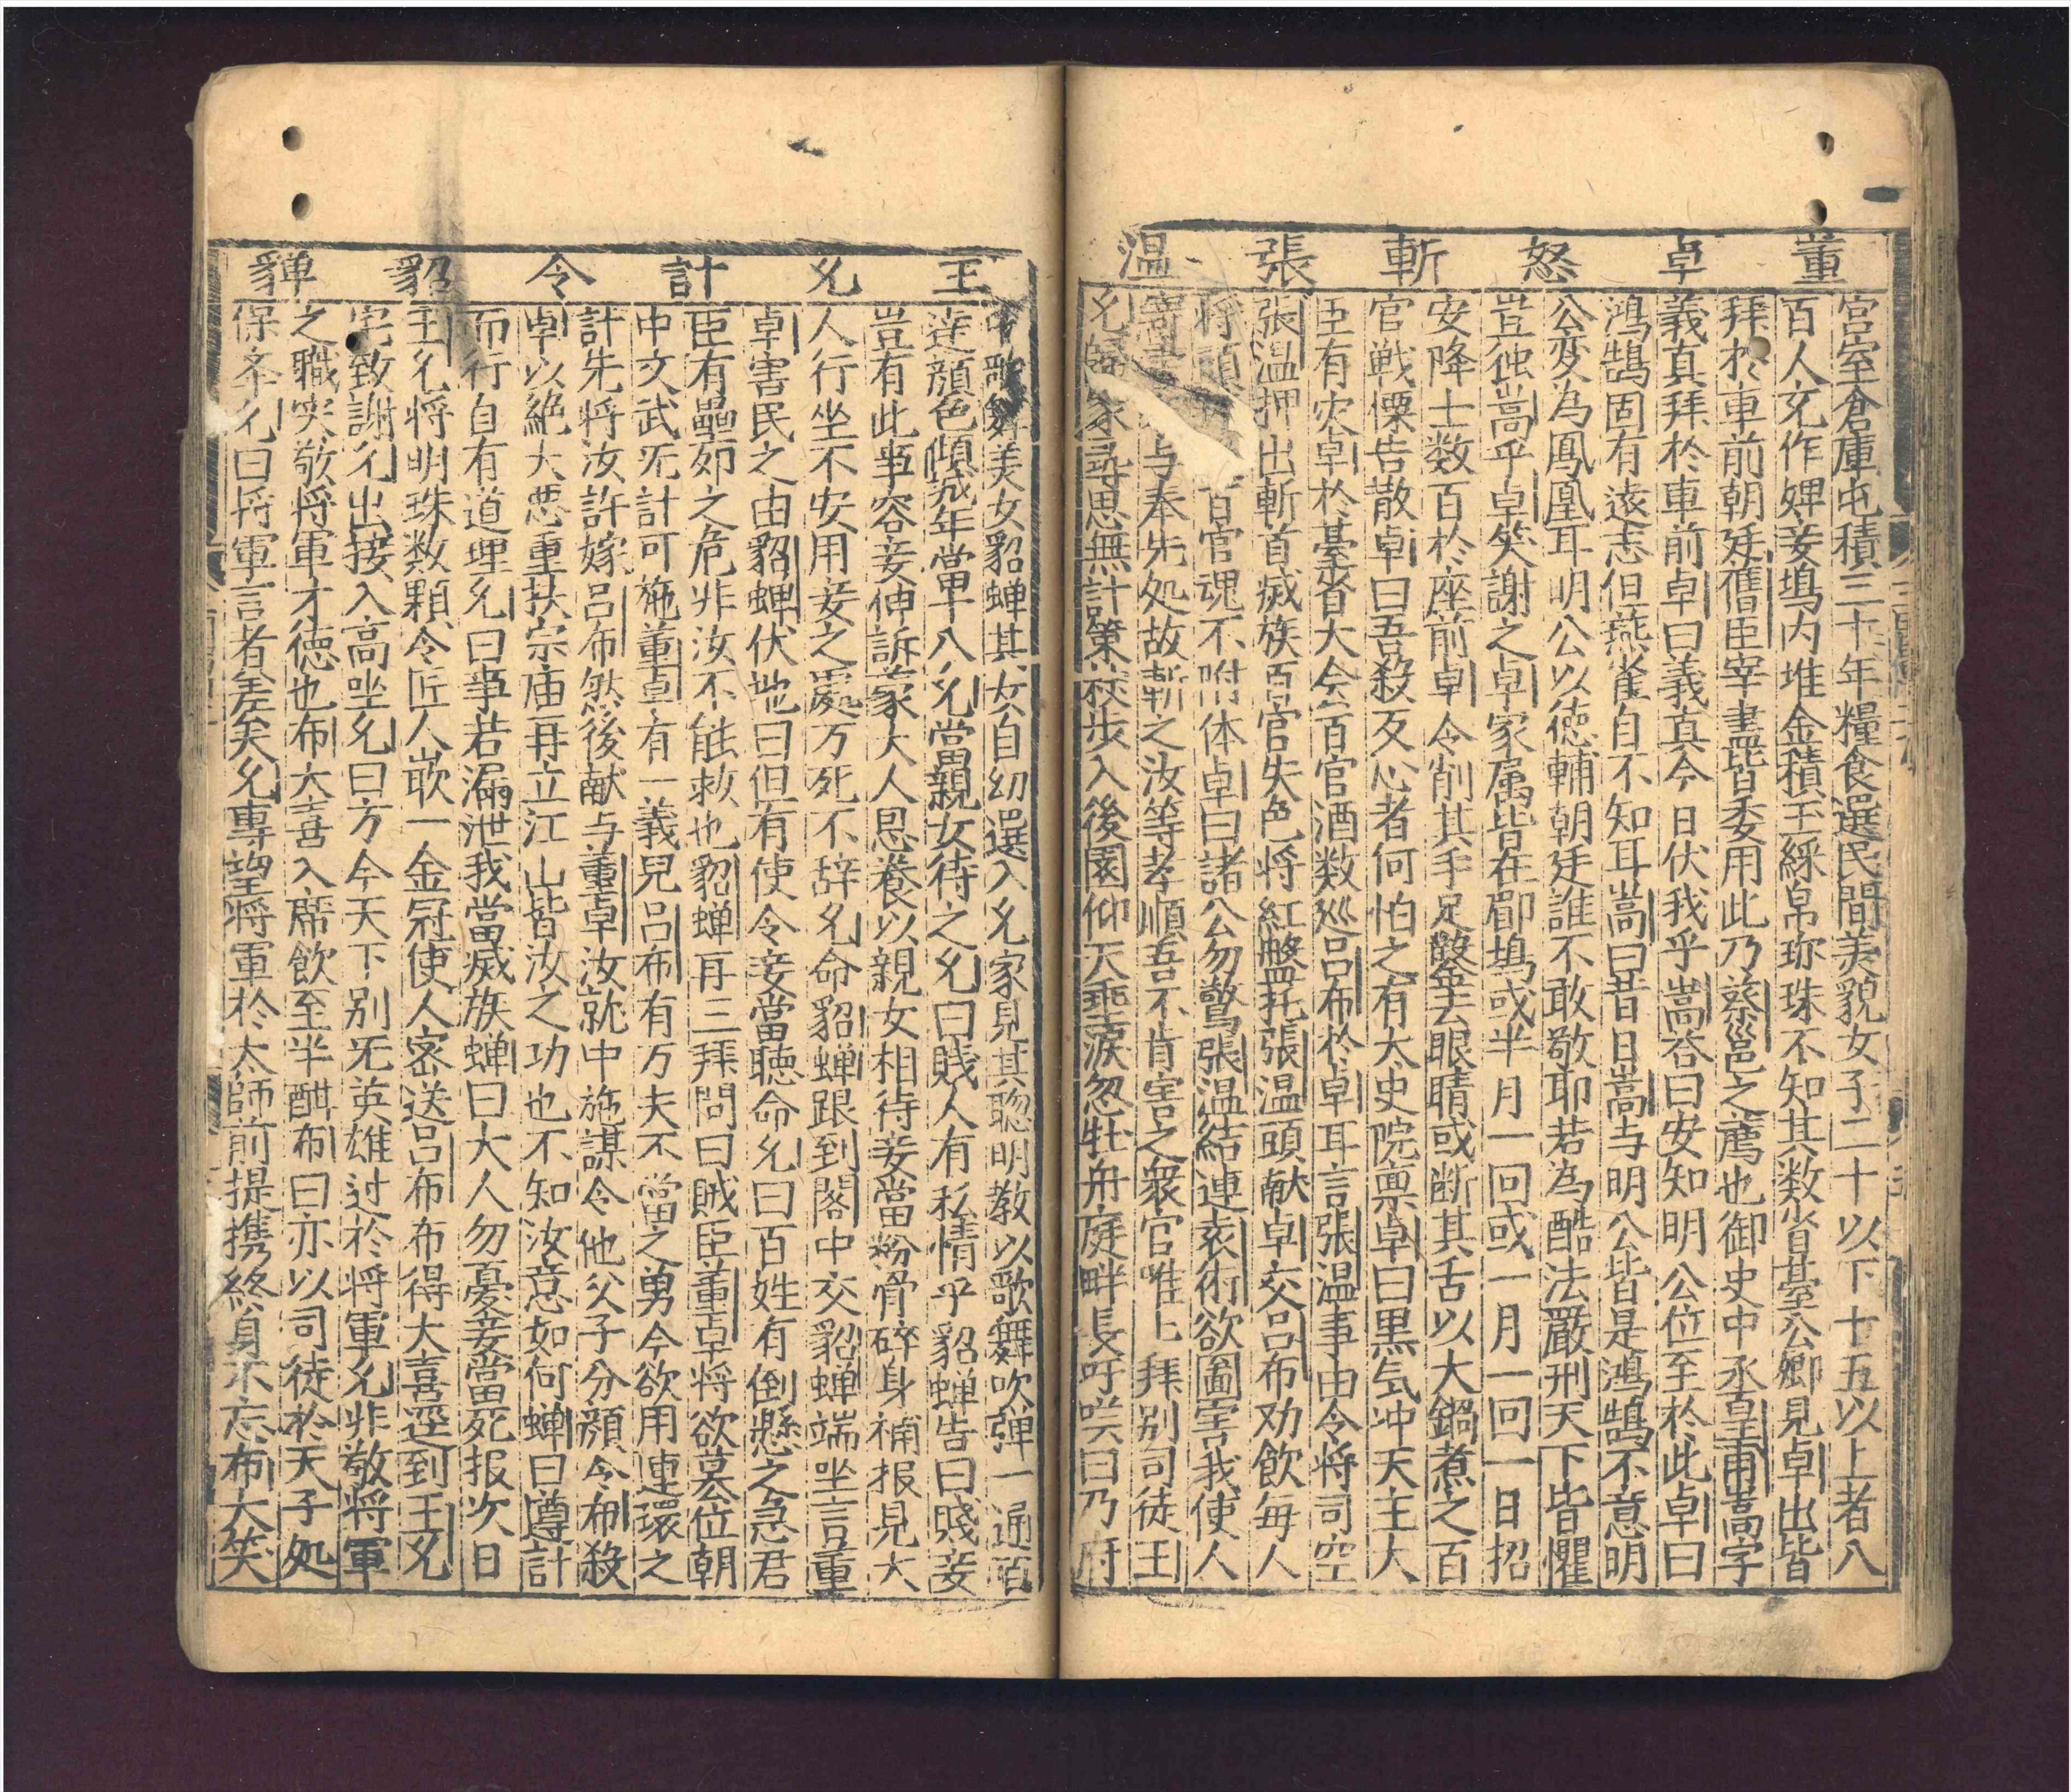 董卓怒斬張溫
宮室倉庫屯積三十年糧食選民間美貌女子二十以下十五以上者八
百人充作婢妾塢内堆金積玉綵帛珎珠不知其数省䑓公卿見卓出皆
拜於車前朝廷舊臣宰盡皆委用此乃蔡邕之薦也御史中丞皇甫嵩字
義真拜於車前卓曰義真今日伏我乎嵩答曰安知明公位至於此卓曰
鴻鵠固有遠志但燕雀自不知耳嵩曰昔日嵩与明公皆是鴻鵠不意明
公变為鳳凰耳明公以徳輔朝廷誰不敢敬耶若為酷法嚴刑天下皆懼
豈独嵩乎卓笑謝之卓家属皆在郿塢或半月一回或一月一回一日招
安降士数百於座前卓令削其手足鑿去眼睛或断其舌以大鍋煮之百
官戦慄告散卓曰吾殺反心者何怕之有太史院禀卓曰黒気冲天主大
臣有灾卓於䑓省大会百官酒数廵吕布於卓耳言張温事由令将司空
張温押出斬首㓕族百官失色将紅盤托張温頭献卓交吕布劝飲每人
将頭百官魂不附体卓曰諸公勿驚張温結連袁術欲圖害我使人
寄書与奉先処故斬之汝等孝順吾不肯害之衆官唯上拜别司徒王
允歸家尋思無計策移步入後園仰天垂淚忽牡丹庭畔長吁咲曰乃府
王允計令貂蟬
中歌舞美女貂蝉其女自幼選入允家見其聦明教以歌舞吹弹一通百
達顔色傾城年當十八允當親女待之允曰賤人有私情乎貂蝉告曰賤妾
豈有此事容妾伸訴蒙大人恩養以親女相待妾當粉骨碎身補报見大
人行坐不安用妾之處万死不辞允命貂蝉跟到閣中交貂蝉端坐言董
卓害民之由貂蝉伏地曰但有使令妾當聴命允曰百姓有倒懸之急君
臣有壘卵之危非汝不能救也貂蝉再三拜問曰賊臣董卓将欲䈿位朝
中文武旡計可施董卓有一義兒吕布有万夫不當之勇今欲用連環之
計先将汝許嫁吕布然後献与董卓汝就中施謀令他父子分顔令布殺
卓以絶大悪重扶宗庙再立江山皆汝之功也不知汝意如何蝉曰遵計
而行自有道理允曰事若漏泄我當㓕族蝉曰大人勿憂妾當死报次日
王允将明珠数顆令匠人嵌一金冠使人密送吕布布得大喜逕到王允
宅致謝允出接入高坐允曰方今天下别旡英雄过於将軍允非敬将軍
之職实敬将軍才徳也布大喜入席飲至半酣布曰亦以司徒於天子処
保奏允曰将軍言者差矣允專望将軍於太師前提携終身不忘布大笑